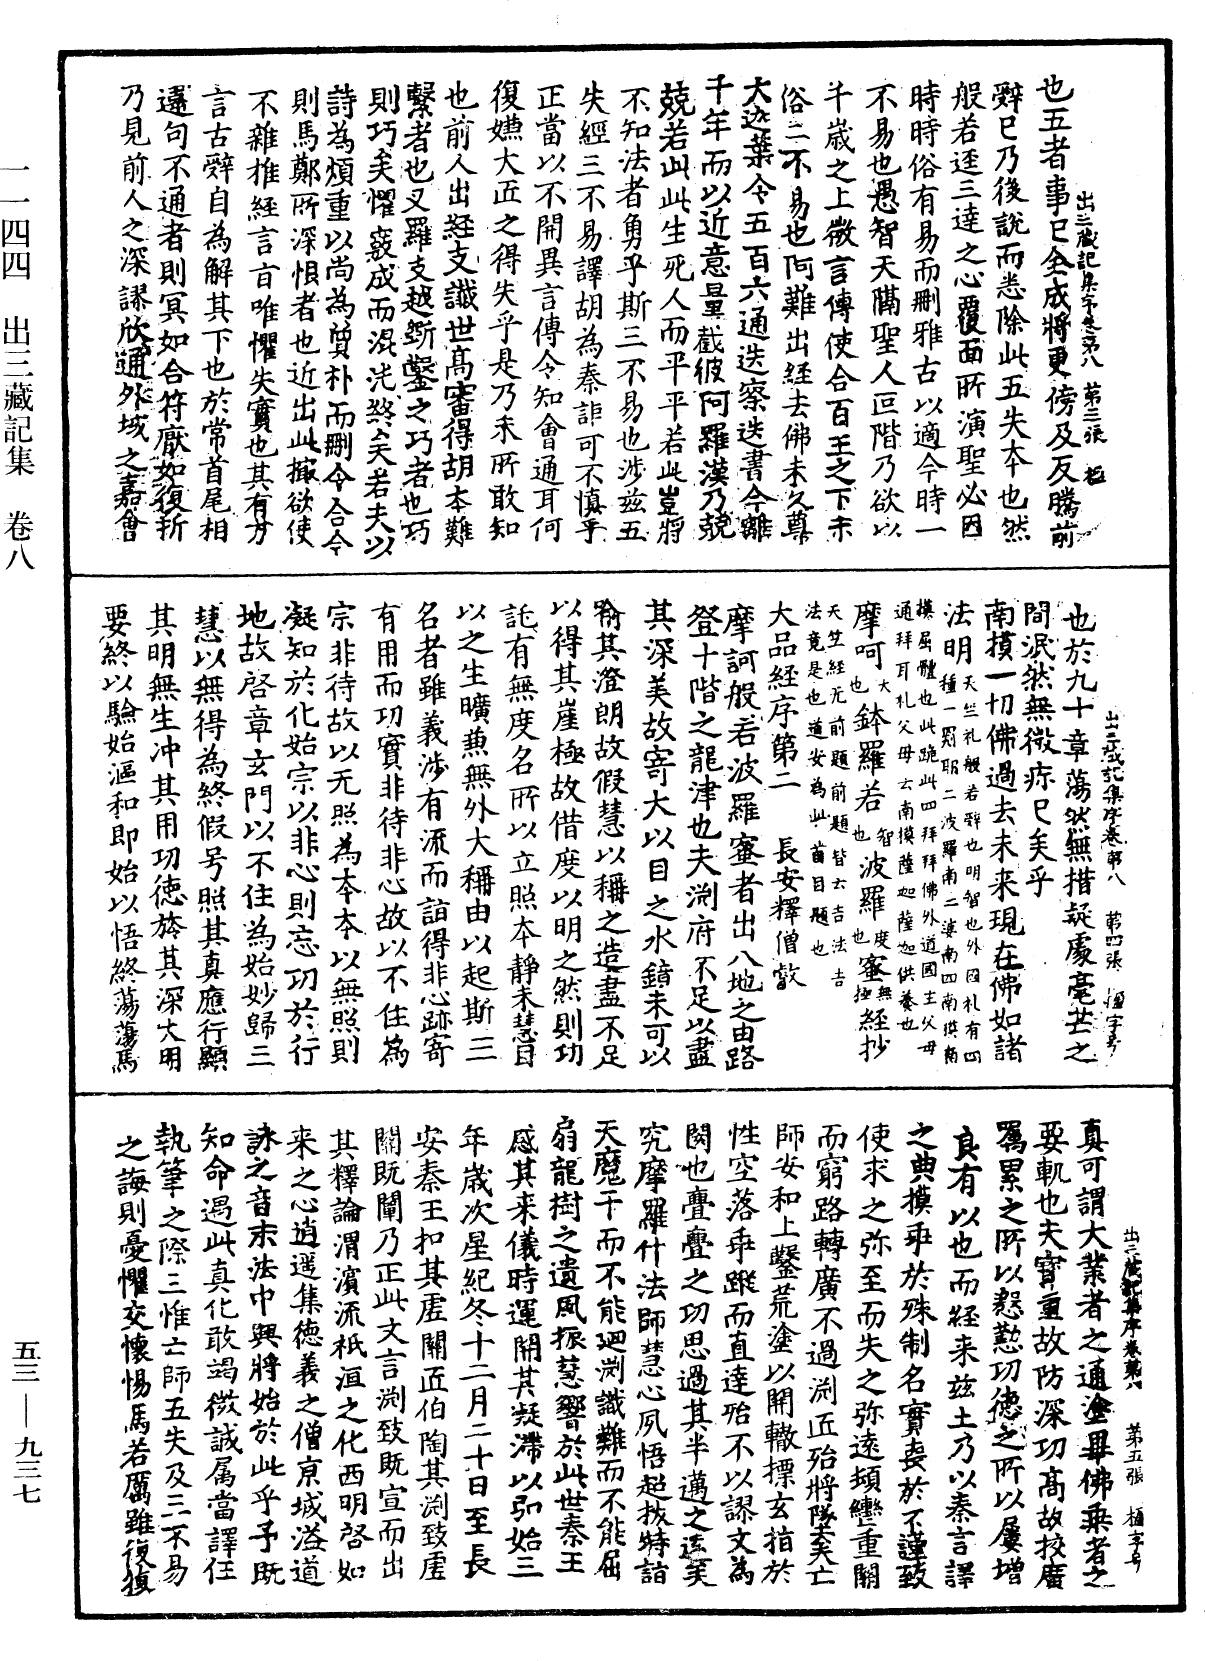 一一四四　出三藏記集　卷八
五三—九三七
出三藏記集序卷第八　第三張　植
也五者事已全成將更傍及反騰前
辭已乃後說而悉除此五失本也然
般若逕三達之心覆面所演聖必因
時時俗有易而刪雅古以適今時一
不易也愚智天隔聖人叵階乃欲以
千歲之上微言傳使合百王之下末
俗二不易也阿難出經去佛未久尊
大迦葉令五百六通迭察迭書今離
千年而以近意量截彼阿羅漢乃兢
兢若此此生死人而平平若此豈將
不知法者勇乎斯三不易也涉茲五
失經三不易譯胡為秦詎可不慎乎
正當以不開異言傳令知會通耳何
復嫌大匠之得失乎是乃未所敢知
也前人出經支讖世高審得胡本難
繫者也叉羅支越斲鑿之巧者也巧
則巧矣懼竅成而混沌終矣若夫以
詩為煩重以尚為質朴而刪令合今
則馬鄭所深恨者也近出此撮欲使
不雜推經言旨唯懼失實也其有方
言古辭自為解其下也於常首尾相
違句不通者則冥如合符厭如復折
乃見前人之深謬欣通外域之嘉會
出三藏記集序卷第八　第四張　植字号
也於九十章蕩然無措疑處毫芒之
間泯然無微疹已矣乎
南摸一切佛過去未來現在佛如諸
法明天竺礼般若辞也明智也外國礼有四種一罽耶二波羅南三婆南四南摸南
摸屈體也此跪此四拜拜佛外道國主父母通拜耳礼父母云南摸薩迦薩迦供養也
摩呵大也鉢羅若智也波羅度也蜜無極經抄
天竺經无前題前題皆云吉法吉法竟是也道安為此首目題也
大品經序第二　長安釋僧叡
摩訶般若波羅蜜者出八地之由路
登十階之龍津也夫渕府不足以盡
其深美故寄大以目之水鏡未可以
喻其澄朗故假慧以稱之造盡不足
以得其崖極故借度以明之然則功
託有無度名所以立照本靜末慧目
以之生曠兼無外大稱由以起斯三
名者雖義涉有流而詣得非心跡寄
有用而功實非待非心故以不住為
宗非待故以无照為本本以無照則
凝知於化始宗以非心則忘功於行
地故啓章玄門以不住為始妙歸三
慧以無得為終假号照其真應行顯
其明無生沖其用功徳旍其深大明
要終以驗始漚和即始以悟終蕩蕩焉
出三藏記集序卷第八　第五張　植字号
真可謂大業者之通塗畢佛乘者之
要軌也夫寶重故防深功高故校廣
囑累之所以慇懃功德之所以屢增
良有以也而經来茲土乃以秦言譯
之典摸乖於殊制名實喪於不謹致
使求之弥至而失之弥遠頓轡重關
而窮路轉廣不遇渕匠殆將墜矣亡
師安和上鑿荒塗以開轍摽玄指於
性空落乖蹤而直達殆不以謬文為
閡也亹亹之功思過其半邁之遠矣
究摩羅什法師慧心夙悟超拔特詣
天魔干而不能迴渕識難而不能屈
扇龍樹之遺風振慧響於此世秦王
感其来儀時運開其凝滯以弘始三
年歲次星紀冬十二月二十日至長
安秦王扣其虛關匠伯陶其渕致虛
關既闡乃正此文言渕致既宣而出
其釋論渭濱流祇洹之化西明啓如
来之心逍遥集德義之僧京城溢道
詠之音末法中興將始於此乎予既
知命遇此真化敢竭微誠属當譯任
執筆之際三惟亡師五失及三不易
之誨則憂懼交懷惕焉若厲雖復復